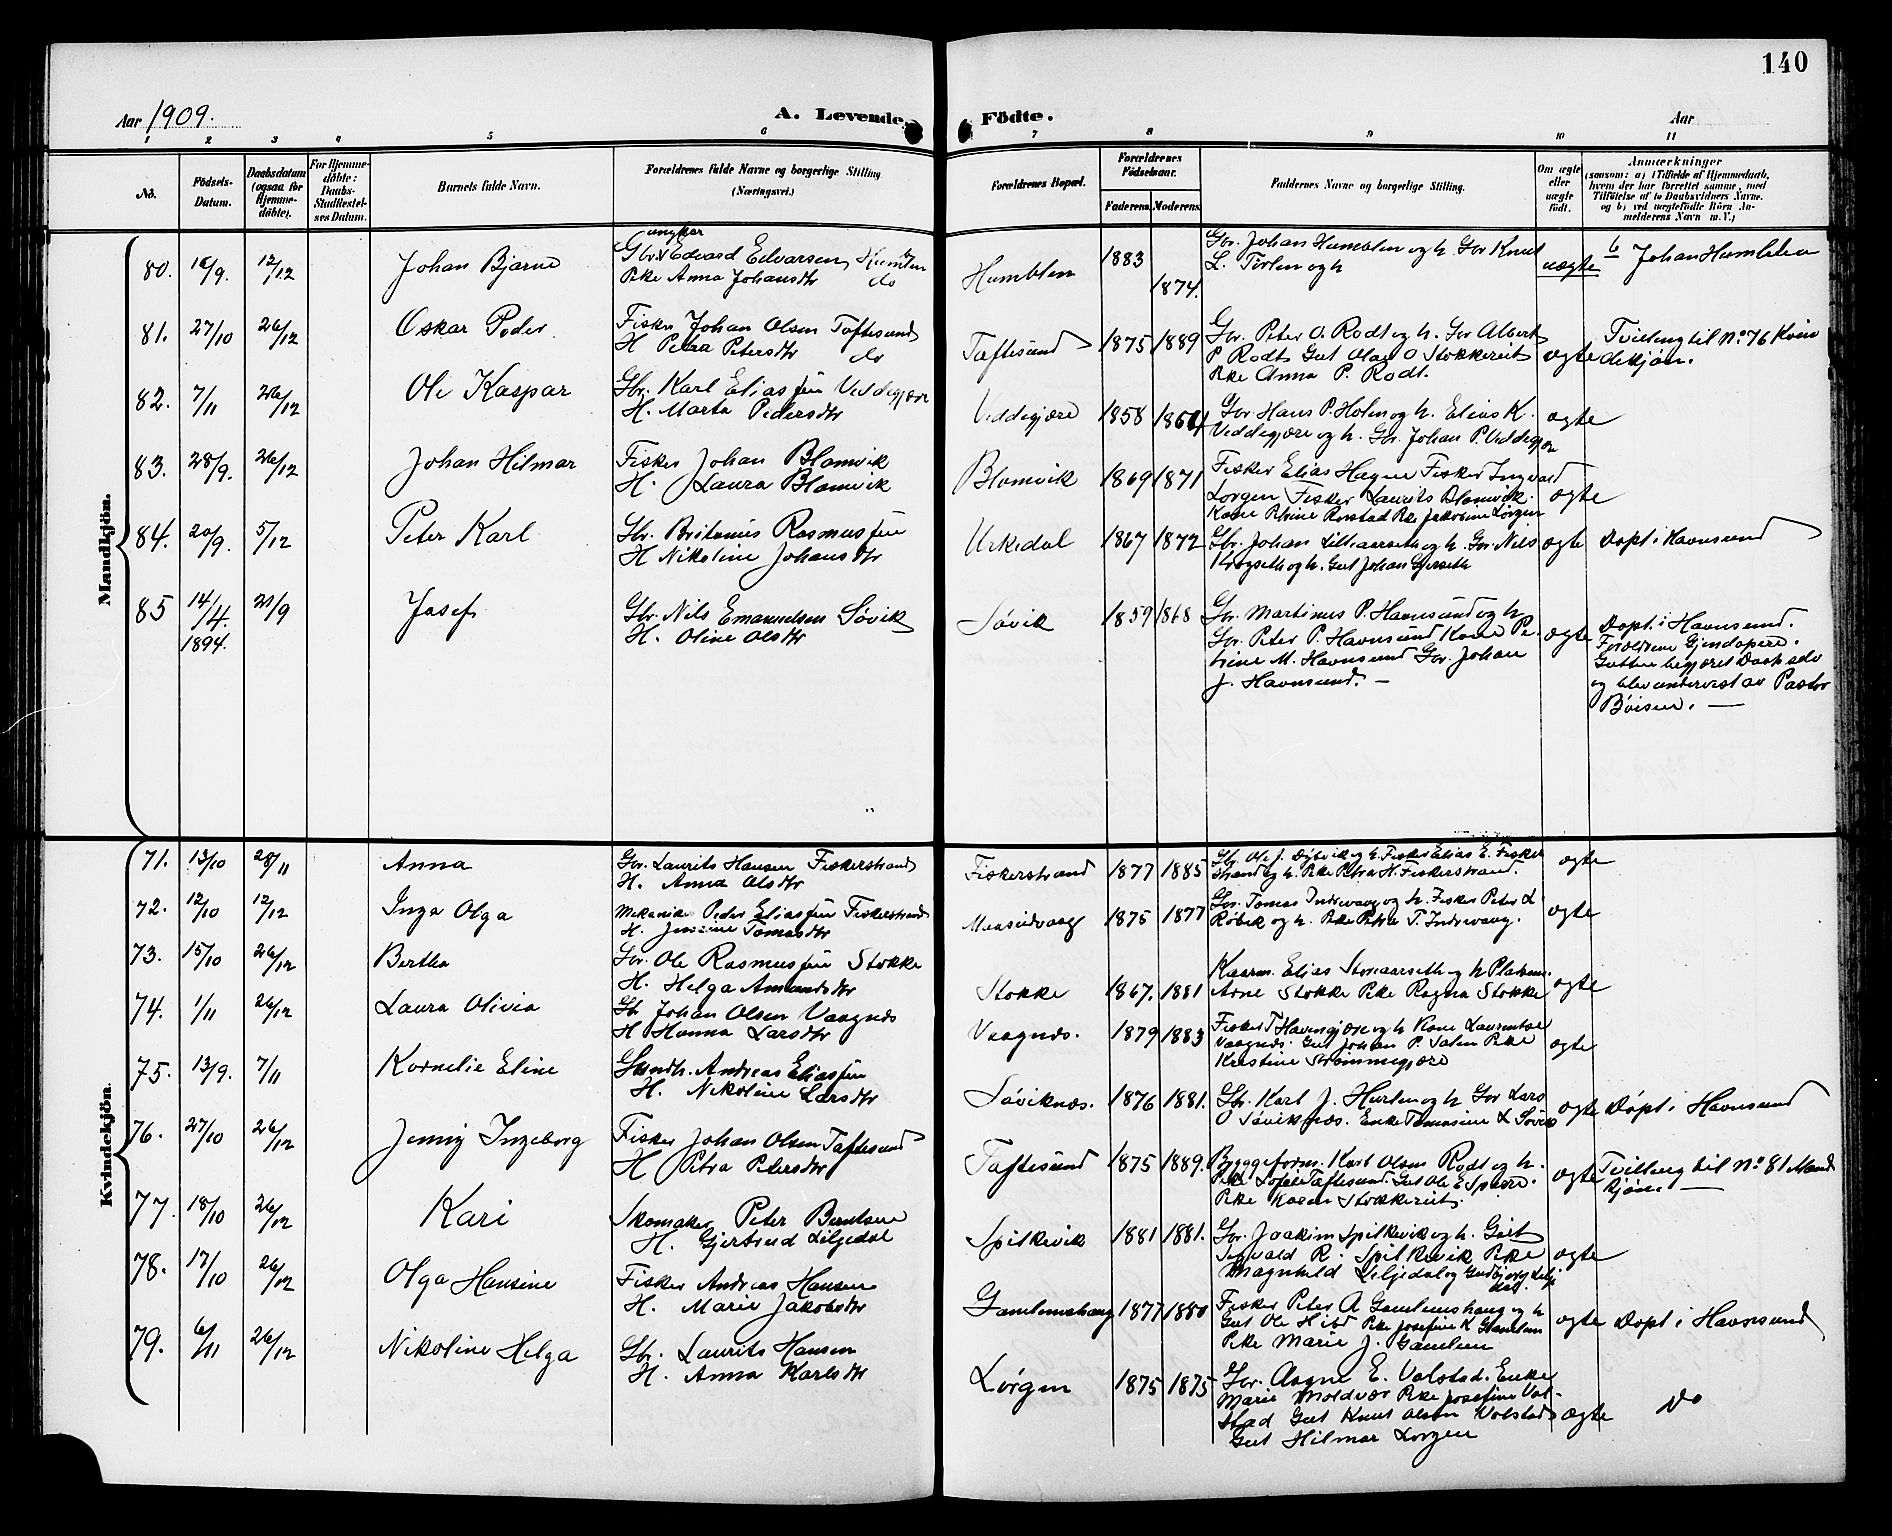 140
Aar 1909.
A. Levende Födte.
Aar
1 2 3 4 5 6 7 8 9 10 11
No.
Födsels-Datum.
Daabsdatum (ogsaa for Hjemme-döbte).
For Hjemme-döbte: Daabs-Stadfæstel-ses Datum.
Barnets fulde Navn.
Forældrenes fulde Navne og borgerlige Stilling (Næringsvei.)
Forældrenes Bopæl.
Forældrenes Födselsaar.
Faderens. Moderens.
Faddernes Navne og borgerlige Stilling.
Om ægte eller uægte født.
Anmærkninger
(saasom: a) i Tilfælde af Hjemmedaab,
hvem der har forrettet samme, med
Tilföielse af to Daabsvidners Navne.
og b) ved uægtefödte Börn An-
melderens Navn m. V.)
Mandkjön.
80. 16/9. 12/12 Johan Bjarne
ungkar
Gbr. Edvard Edvarsen, Humblen
Pike Anna Johansdtr do
Humblen 1883 1874.
Gbr. Johan Humblen og h. Gbr Knut
L. Tørlen og h
uægte
b Johan Humblen
81. 27/10 26/12 Oskar Peder
Fisker Johan Olsen Taftesund
H Petra Petersdtr do
Taftesund 1875 1889
Gbr. Peter O. Rødt og h. Gbr Albert
P Rødt Gut Olav O Stokkereit
Pike Anna P. Rødt.
ægte
Tvilling til No. 76 Kvin
dekjøn.
82. 7/11 26/12 Ole Kaspar
Gbr. Karl Eliassen Veddegjære
H. Marta Pedersdtr
Veddegjære 1858 1864
Gbr Hans P. Holen og h. Elias K.
Veddegjære og h. Gbr. Johan P. Veddegjær
ægte
83. 28/9. 26/12 Johan Hilmar
Fisker Johan Blomvik
H. Laura Blomvik
Blomvik 1869 1871
Fisker Elias Hagne Fisker Ingvald
Lørgen Fisker Laurits Blomvik.
Kone Rorstad Pike Jakobine Lørgen
ægte
84. 20/9. 5/12 Peter Karl
Gbr. Britanus Rasmussen
H Nikoline Johansdtr
Urkedal 1867 1872
Gbr. Johan Lilleaarseth og h. Gbr. Nils
Krogseth og h. Gut Johan Gjerseth
ægte
Døpt i Havnsund
85 14/4. 1894. 21/9 Josef
Gbr. Nils Emanuelsen Søvik
H. Oline Olsdtr
Søvik 1859 1868
Gbr. Martinus P. Havnsund og h
Gbr. Peter P. Havnsund Kone Pe-
trine M. Havnsund Gbr. Johan
J. Havnsund. —
ægte
Døpt i Havnsund.
Forældrene Gjendøpere.
Gutten begjæret Daab selv
og blev undervist av Pastor
Bøisen. —
Kvindekjön.
71. 13/10 28/11 Anna
Gbr. Laurits Hansen Fiskerstrand
H. Anna Olsdtr
Fiskerstrand 1877 1885
Gbr. Ole J. Dybvik og h. Fisker Elias E. Fisker
strand og h. Pike Petra H. Fiskerstrand.
ægte
72. 12/10 12/12 Inga Olga
Mekaniker Peder Eliassen Fiskerstrand
H. Jensine Tomasdtr
Maaseidvaag 1875 1877
Gbr. Tomas Indrevaag og h. Fisker Peter L.
Røbek og h. Pike Petra T. Indrevaag.
ægte
73. 15/10 26/12 Bertha
Gbr. Ole Rasmussen Stokke
H. Helga Amundsdtr
Stokke 1867. 1881
Kaarm. Elias Storaarseth og h Platsm.
Arne Stokke Pike Ragna Stokke
ægte
74. 1/11 26/12 Laura Olivia
Gb Johan Olsen Vaagnæs
H Hanna Larsdtr
Vaagnæs. 1879 1883
Fisker T Havengjære og h Kone Laurentse
Vaagnæs. Gut Johan P. Salen Pike
Kristine Strømmegjære
ægte
75. 13/9. 7/11 Kornelie Eline
Gaardbr. Andreas Eliassen
H. Nikoline Larsdtr
Søviknæs. 1876 1881.
Gbr. Karl J. Hurlen og h Gbr Lars
O Søviknæs. Enke Tomasine L Søvik
ægte
Døpt i Havnsund
76. 27/10 26/12 Jenny Ingeborg
Fisker Johan Olsen Taftesund
H Petra Petersdtr
Taftesund 1875 1889.
Byggeform. Karl Olsen Rødt og h.
Pike Sofie Taftesund. Gut Ole E Sperre.
Pike Karen Stokkereit.
ægte
Tvilling til No. 81 Mand
kjøn. —
77. 18/10 26/12 Kari
Skomaker Peter Berntsen
H. Gjertrud Liljedal
Spilkevik 1881 1881.
Gbr. Joakim Spilkevik og h. Gut
Sigvald R. Spilkevik Pike
Magnhild Liljedal og Gudbjørg Lilje
dal.
ægte
78. 17/10 26/12 Olga Hansine
Fisker Andreas Hansen
H. Marie Jakobsdtr
Gamlemshaug 1877 1880
Fisker Peter A Gamlemshaug og h
Gut Ole Hild Pike Josefine K Gamlem
Pike Marie J. Gamlem
ægte
Døpt i Havnsund
79. 6/11 26/12 Nikoline Helga
Gbr. Laurits Hansen
H. Anna Karlsdtr
Lørgen 1875 1875
Gbr. Aagne E. Valstad. Enke
Marie Moldvær Pike Josefine Val-
stad Gut Knut Olsen Valstad
Gut Hilmar Lorgen
ægte
do